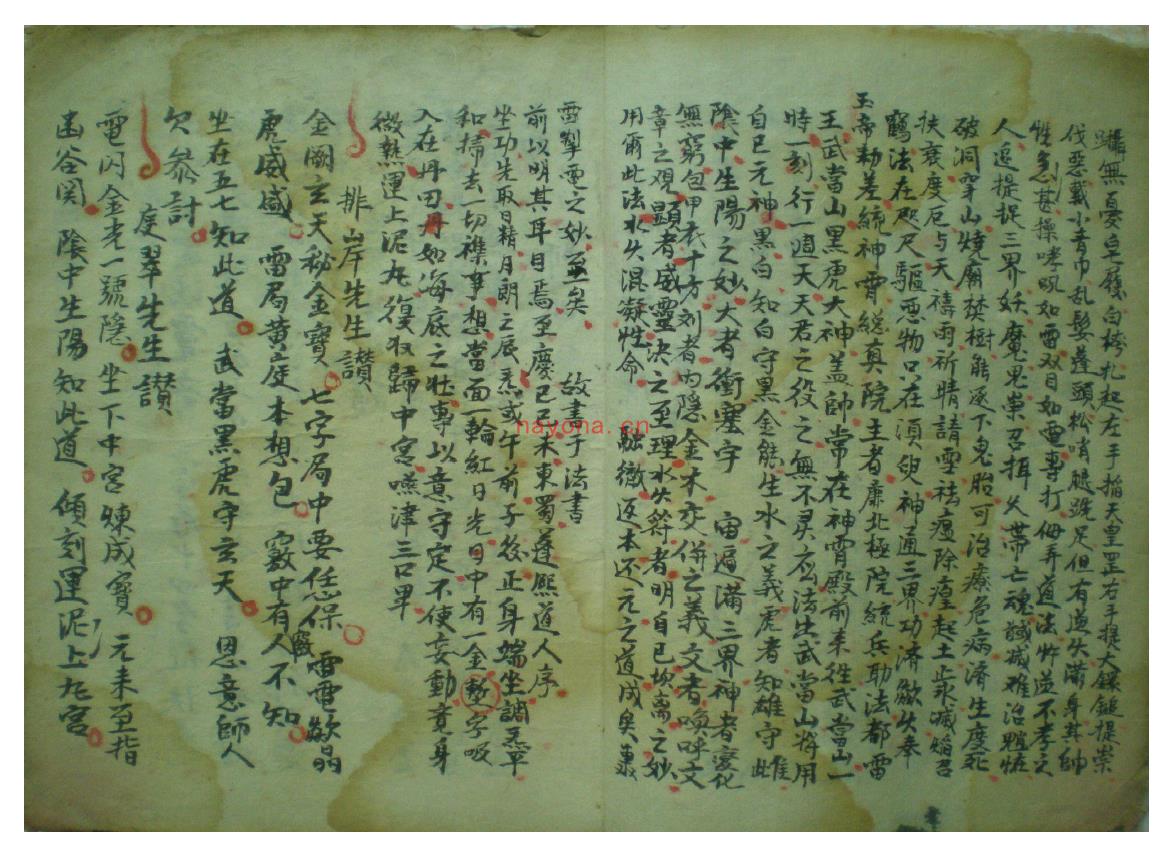 躡無憂皂履白榜札起左手指天皇罡右手提大鏁鎚提崇
伐惡戴小青巾乱髮蓬頭松哨腿跣足但有違失滿身其帥
性急甚操哮吼如雷双目如電專打侮弄道法忤逆不孝之
人追提捉三界妖魔鬼祟召押久滯亡魂誠滅难治
破洞穿山燒廟焚樹能逐下鬼胎可治療危病済生度死
扶衰度厄与天禱雨祈晴請雪祛瘟除瘧起土止滅焰召
鶴法在咫尺驅惡物只在須臾神通三界功済歛失奉
玉帝勅差統神霄総真院主者亷北極院統兵助法都雷
王武當山黒虎大神盖帥常在神霄殿前耒徃武當山一
時一刻行一週天天君之役之無不灵应法出武當山將用
自己元神黒白知白守黒金能生水之義虎者知雄守雌
陰中生陽之妙大者衝塞宇宙遍滿三界神者変化
無窮包甲衣十方刘者內隐金木交併之義交者喚呼文
章之覌顕者威靈决之至理水失符者明自已坎离之妙
用爾此法水失混凝性命融徹返本还元之道成矣褁
雷掣電之妙至矣 故書于法書
前以明其耳目焉至慶已已未東蜀蓬熙道人序
坐功先取日精月朗之辰炁或午前子後正身端坐調炁平
和掃去一切襍事想當面一輪紅日光日中有一金勅字吸
入在丹田丹如海底之壮專以意守定不使妄動竟身
微熱運上泥丸復収歸中宮嚥津三口畢
排岸先生讃
金闕玄天秘金寶 七字局中要恁保 雷電歘晶
虎威盛 雷局黄庭本想包 竅中有人不知
坐在五七知此道 武當黒虎守玄天 恩意師人
欠叅討
庭翠先生讃
電閃金光一號隐 坐下中宮煉成寶 元耒至指
函谷関 陰中生陽知此道 傾刻運泥上九宮
nayona.cn